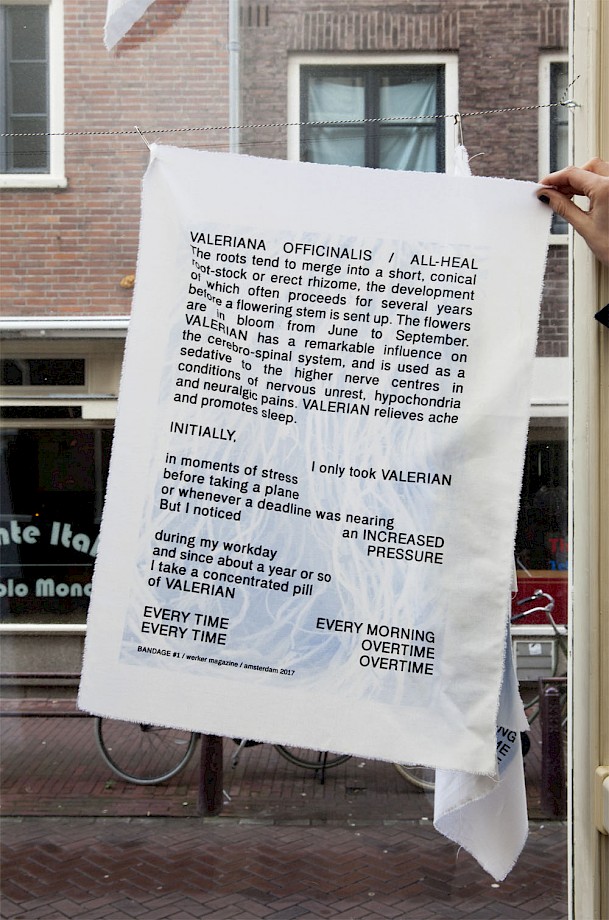 VALERIANA OFFICINALIS / ALL-HEAL
The roots tend to merge into a short, conical
root-stock or erect rhizome, the development
of which often proceeds for several years
before a flowering stem is sent up. The flowers
are in bloom from June to September.
VALERIAN has a remarkable influence on
the cerebro-spinal system, and is used as a
sedative to the higher nerve centres in
conditions of nervous unrest, hypochondria
and neuralgic pains. VALERIAN relieves ache
and promotes sleep.
INITIALLY,
I only took VALERIAN
in moments of stress
before taking a plane
or whenever a deadline was nearing
But I noticed
an INCREASED
PRESSURE
during my workday
and since about a year or so
I take a concentrated pill
of VALERIAN
EVERY TIME EVERY MORNING
EVERY TIME OVERTIME
OVERTIME
BANDAGE #1 / werker magazine / amsterdam 2017
nte Ital
olo Mond